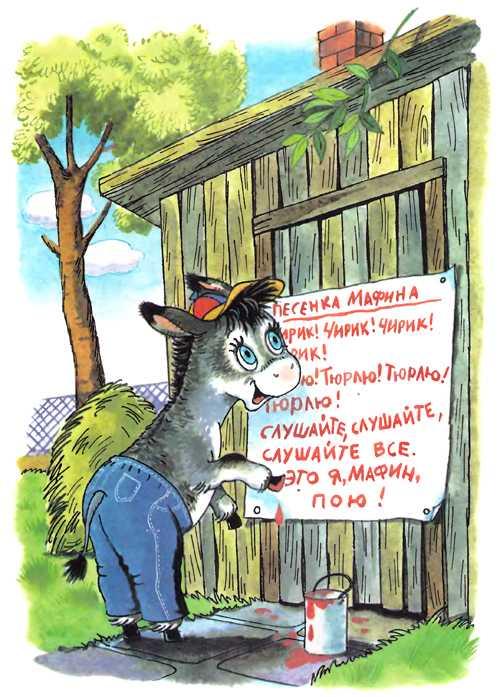 ПЕСЕНКА МАФИНА
ЧИРИК! ЧИРИК! ЧИРИК!
ЧИРИК!
ТЮРЛЮ! ТЮРЛЮ! ТЮРЛЮ!
ТЮРЛЮ!
СЛУШАЙТЕ, СЛУШАЙТЕ,
СЛУШАЙТЕ ВСЕ.
ЭТО Я, МАФИН,
ПОЮ!